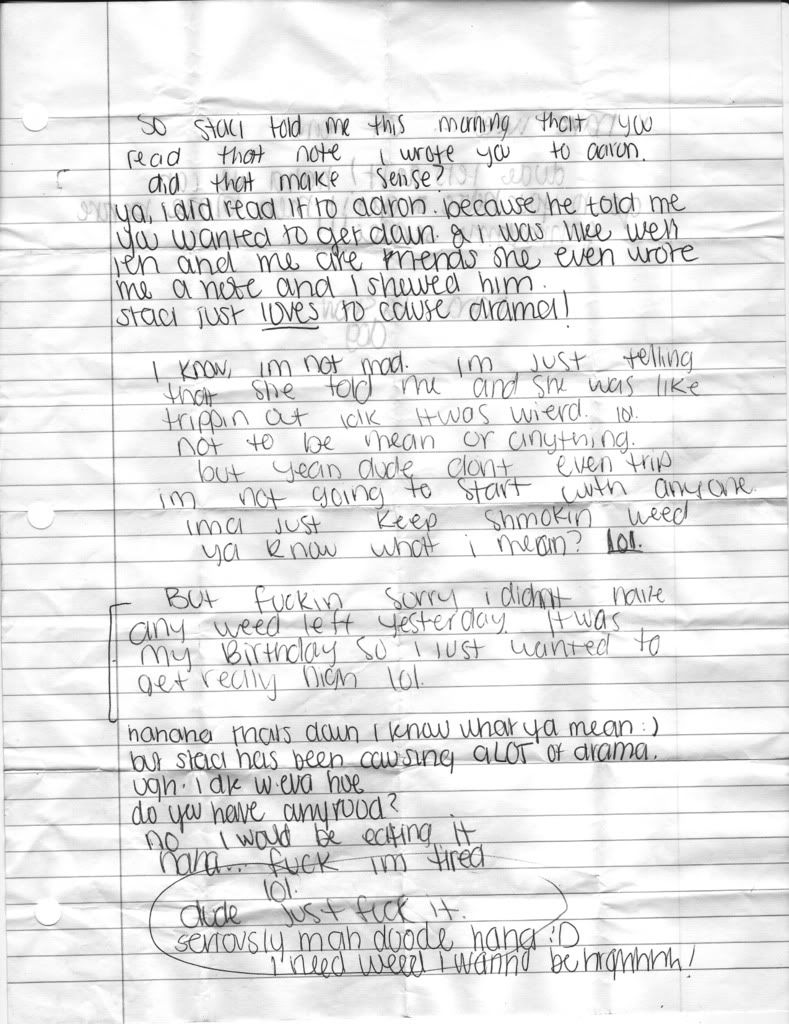 So staci told me this morning that you
read that note i wrote you to aaron.
did that make sense?
ya, i did read it to aaron. because he told me
you wanted to get down. & i was like well
jen and me are friends she even wrote
me a note and I showed him.
staci just loves to cause drama!
I know, im not mad. im just telling
that she told me and she was like
trippin out idk it was wierd. lol.
not to be mean or anything.
but yeah dude dont even trip
im not going to start with anyone.
ima just keep shmokin weed
ya know what i mean? lol.
But fuckin sorry i didnt have
any weed left yesterday. It was
my Birthday so i just wanted to
get really high lol.
hahaha thats down i know what ya mean :)
but staci has been causing a LOT of drama.
ugh. idk w.eva hoe
do you have any food?
no i would be eating it
haha.. fuck im tired
lol.
dude just fuck it.
seriously mah doode haha :D
i need weed i wanna be highhhh!